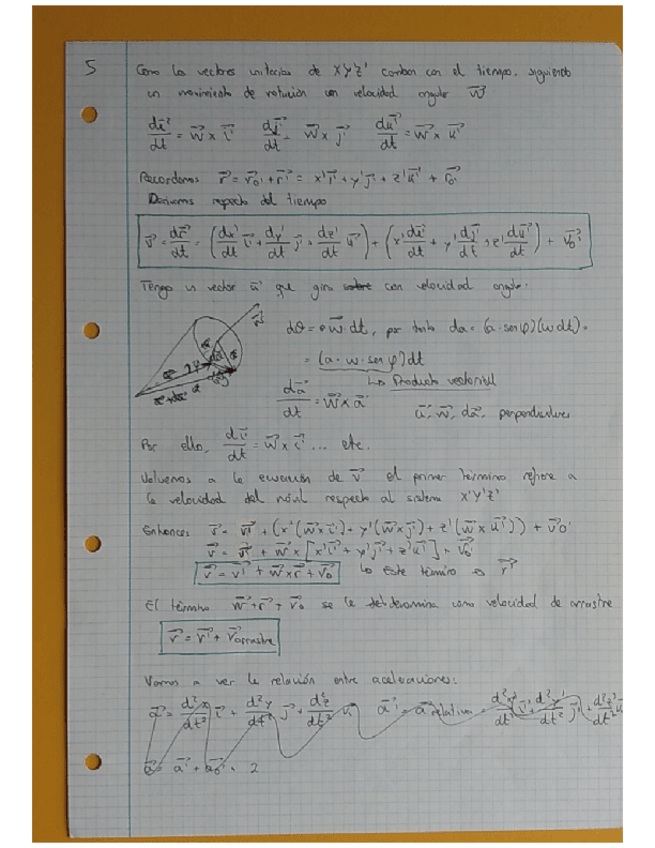 5
Como los vectores unitarios de X'Y'Z' cambian con el tiempo, siguiendo
un movimiento de rotación con velocidad angular w⃗
dī'/dt = w⃗ x i⃗'   dj⃗'/dt = w⃗ x j⃗'   du⃗'/dt = w⃗ x u⃗'
Recordemos r⃗ = r⃗o' + r⃗' = x'i⃗' + y'j⃗' + z'u⃗' + r⃗o'
Derivamos respecto del tiempo
v⃗ = dr⃗/dt = (dx'/dt i⃗' + dy'/dt j⃗' + dz'/dt u⃗') + (x' di⃗'/dt + y' dj⃗'/dt + z' du⃗'/dt) + v⃗o'
Tengo un vector a⃗' que gira con velocidad angular.
dθ = w⃗·dt, por tanto da = (a·senφ)(w dt) =
= (a·w·senφ)dt
↳ Producto vectorial
da⃗/dt = w⃗ x a⃗
a⃗, w⃗, da⃗, perpendiculares
Por ello, di⃗'/dt = w⃗ x i⃗' ... etc.
Volvemos a la ecuación de v⃗ el primer término refiere a
la velocidad del móvil respecto al sistema X'Y'Z'
Entonces v⃗ = v⃗' + (x'(w⃗ x i⃗') + y'(w⃗ x j⃗') + z'(w⃗ x u⃗')) + v⃗o'
v⃗ = v⃗' + w⃗ x [x'i⃗' + y'j⃗' + z'u⃗'] + v⃗o'
v⃗ = v⃗' + w⃗ x r⃗ + v⃗o   ↳ Este término es r⃗'
El término w⃗ + r⃗ + v⃗o se le determina como velocidad de arrastre
v⃗ = v⃗' + v⃗arrastre
Vamos a ver la relación entre aceleraciones:
a⃗ = d²x/dt² i⃗ + d²y/dt² j⃗ + d²z/dt² u⃗   a⃗' = a⃗ relativa = d²x'/dt² i⃗' + d²y'/dt² j⃗' + d²z'/dt² u⃗'
a⃗ = a⃗' + a⃗o' + 2